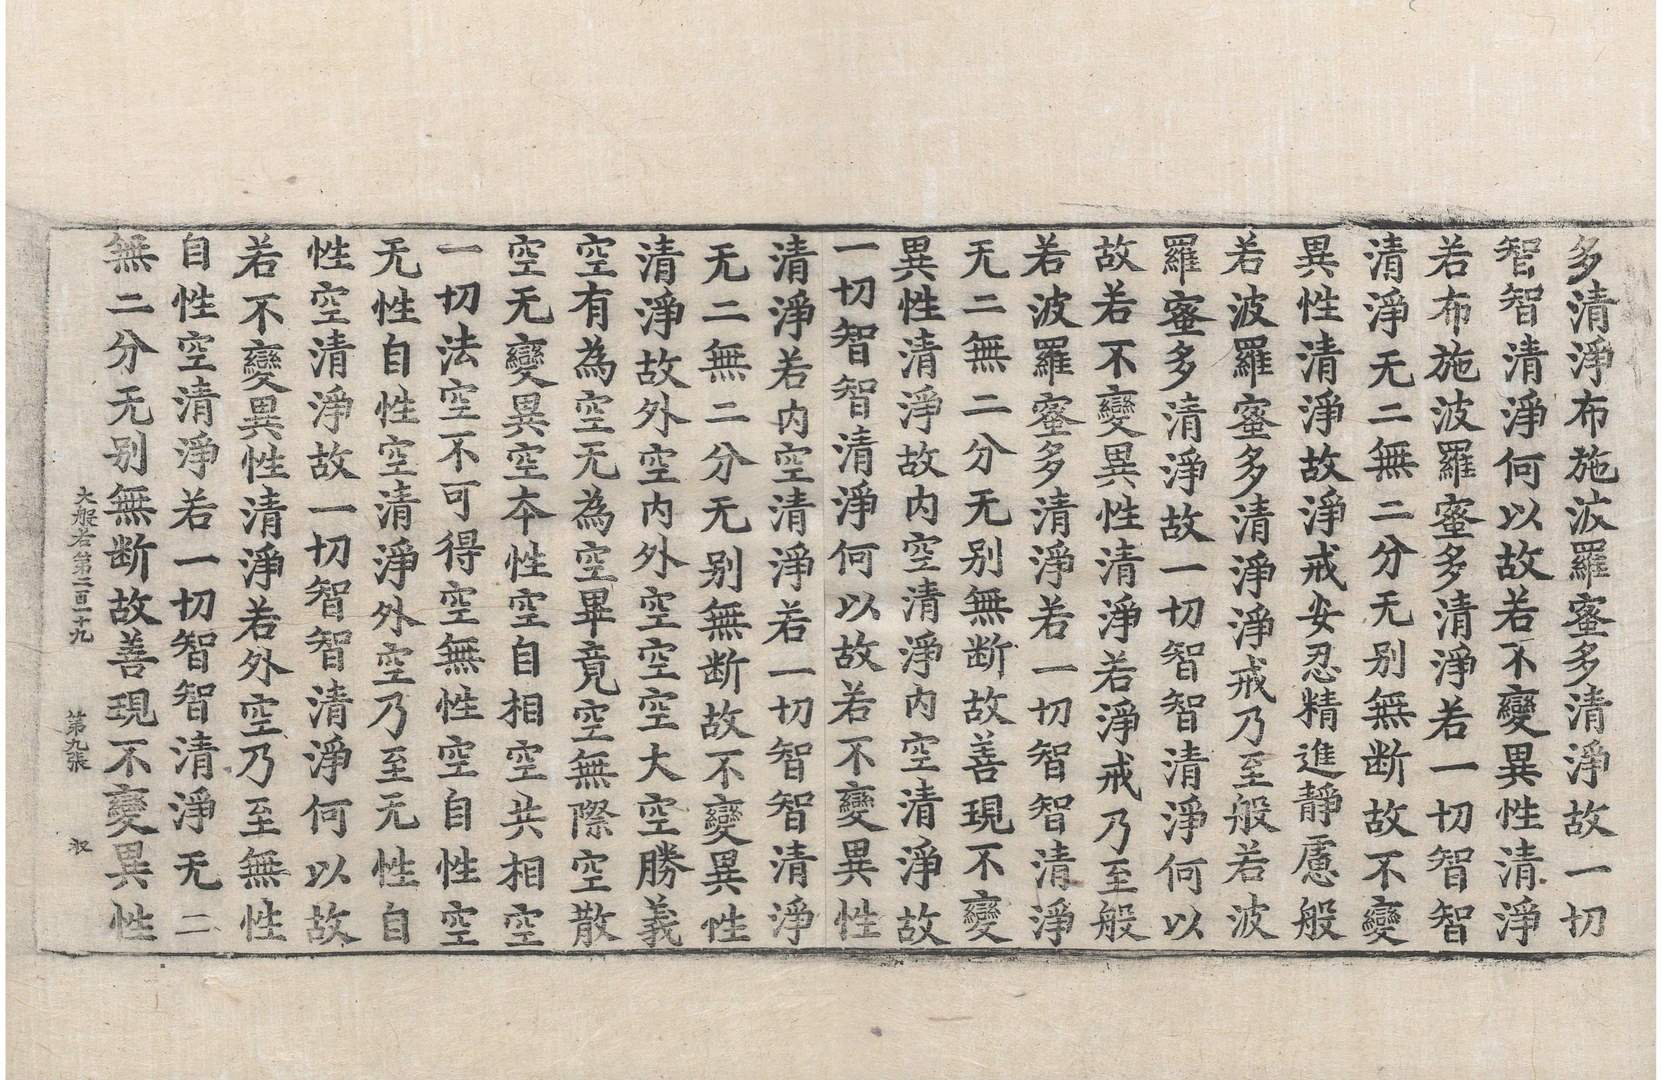 多清淨布施波羅蜜多清淨故一切
智智清淨何以故若不變異性清淨
若布施波羅蜜多清淨若一切智智
清淨无二無二分无别無断故不變
異性清淨故淨戒安忍精進靜慮般
若波羅蜜多清淨淨戒乃至般若波
羅蜜多清淨故一切智智清淨何以
故若不變異性清淨若淨戒乃至般
若波羅蜜多清淨若一切智智清淨
无二無二分无别無断故善現不變
異性清淨故内空清淨内空清淨故
一切智智清淨何以故若不變異性
清淨若内空清淨若一切智智清淨
无二無二分无别無断故不變異性
清淨故外空内外空空空大空勝義
空有為空无為空畢竟空無際空散
空无變異空夲性空自相空共相空
一切法空不可得空無性空自性空
无性自性空清淨外空乃至无性自
性空清淨故一切智智清淨何以故
若不變異性清淨若外空乃至無性
自性空清淨若一切智智清淨无二
無二分无别無断故善現不變異性
大般若第二百二十九 第九張